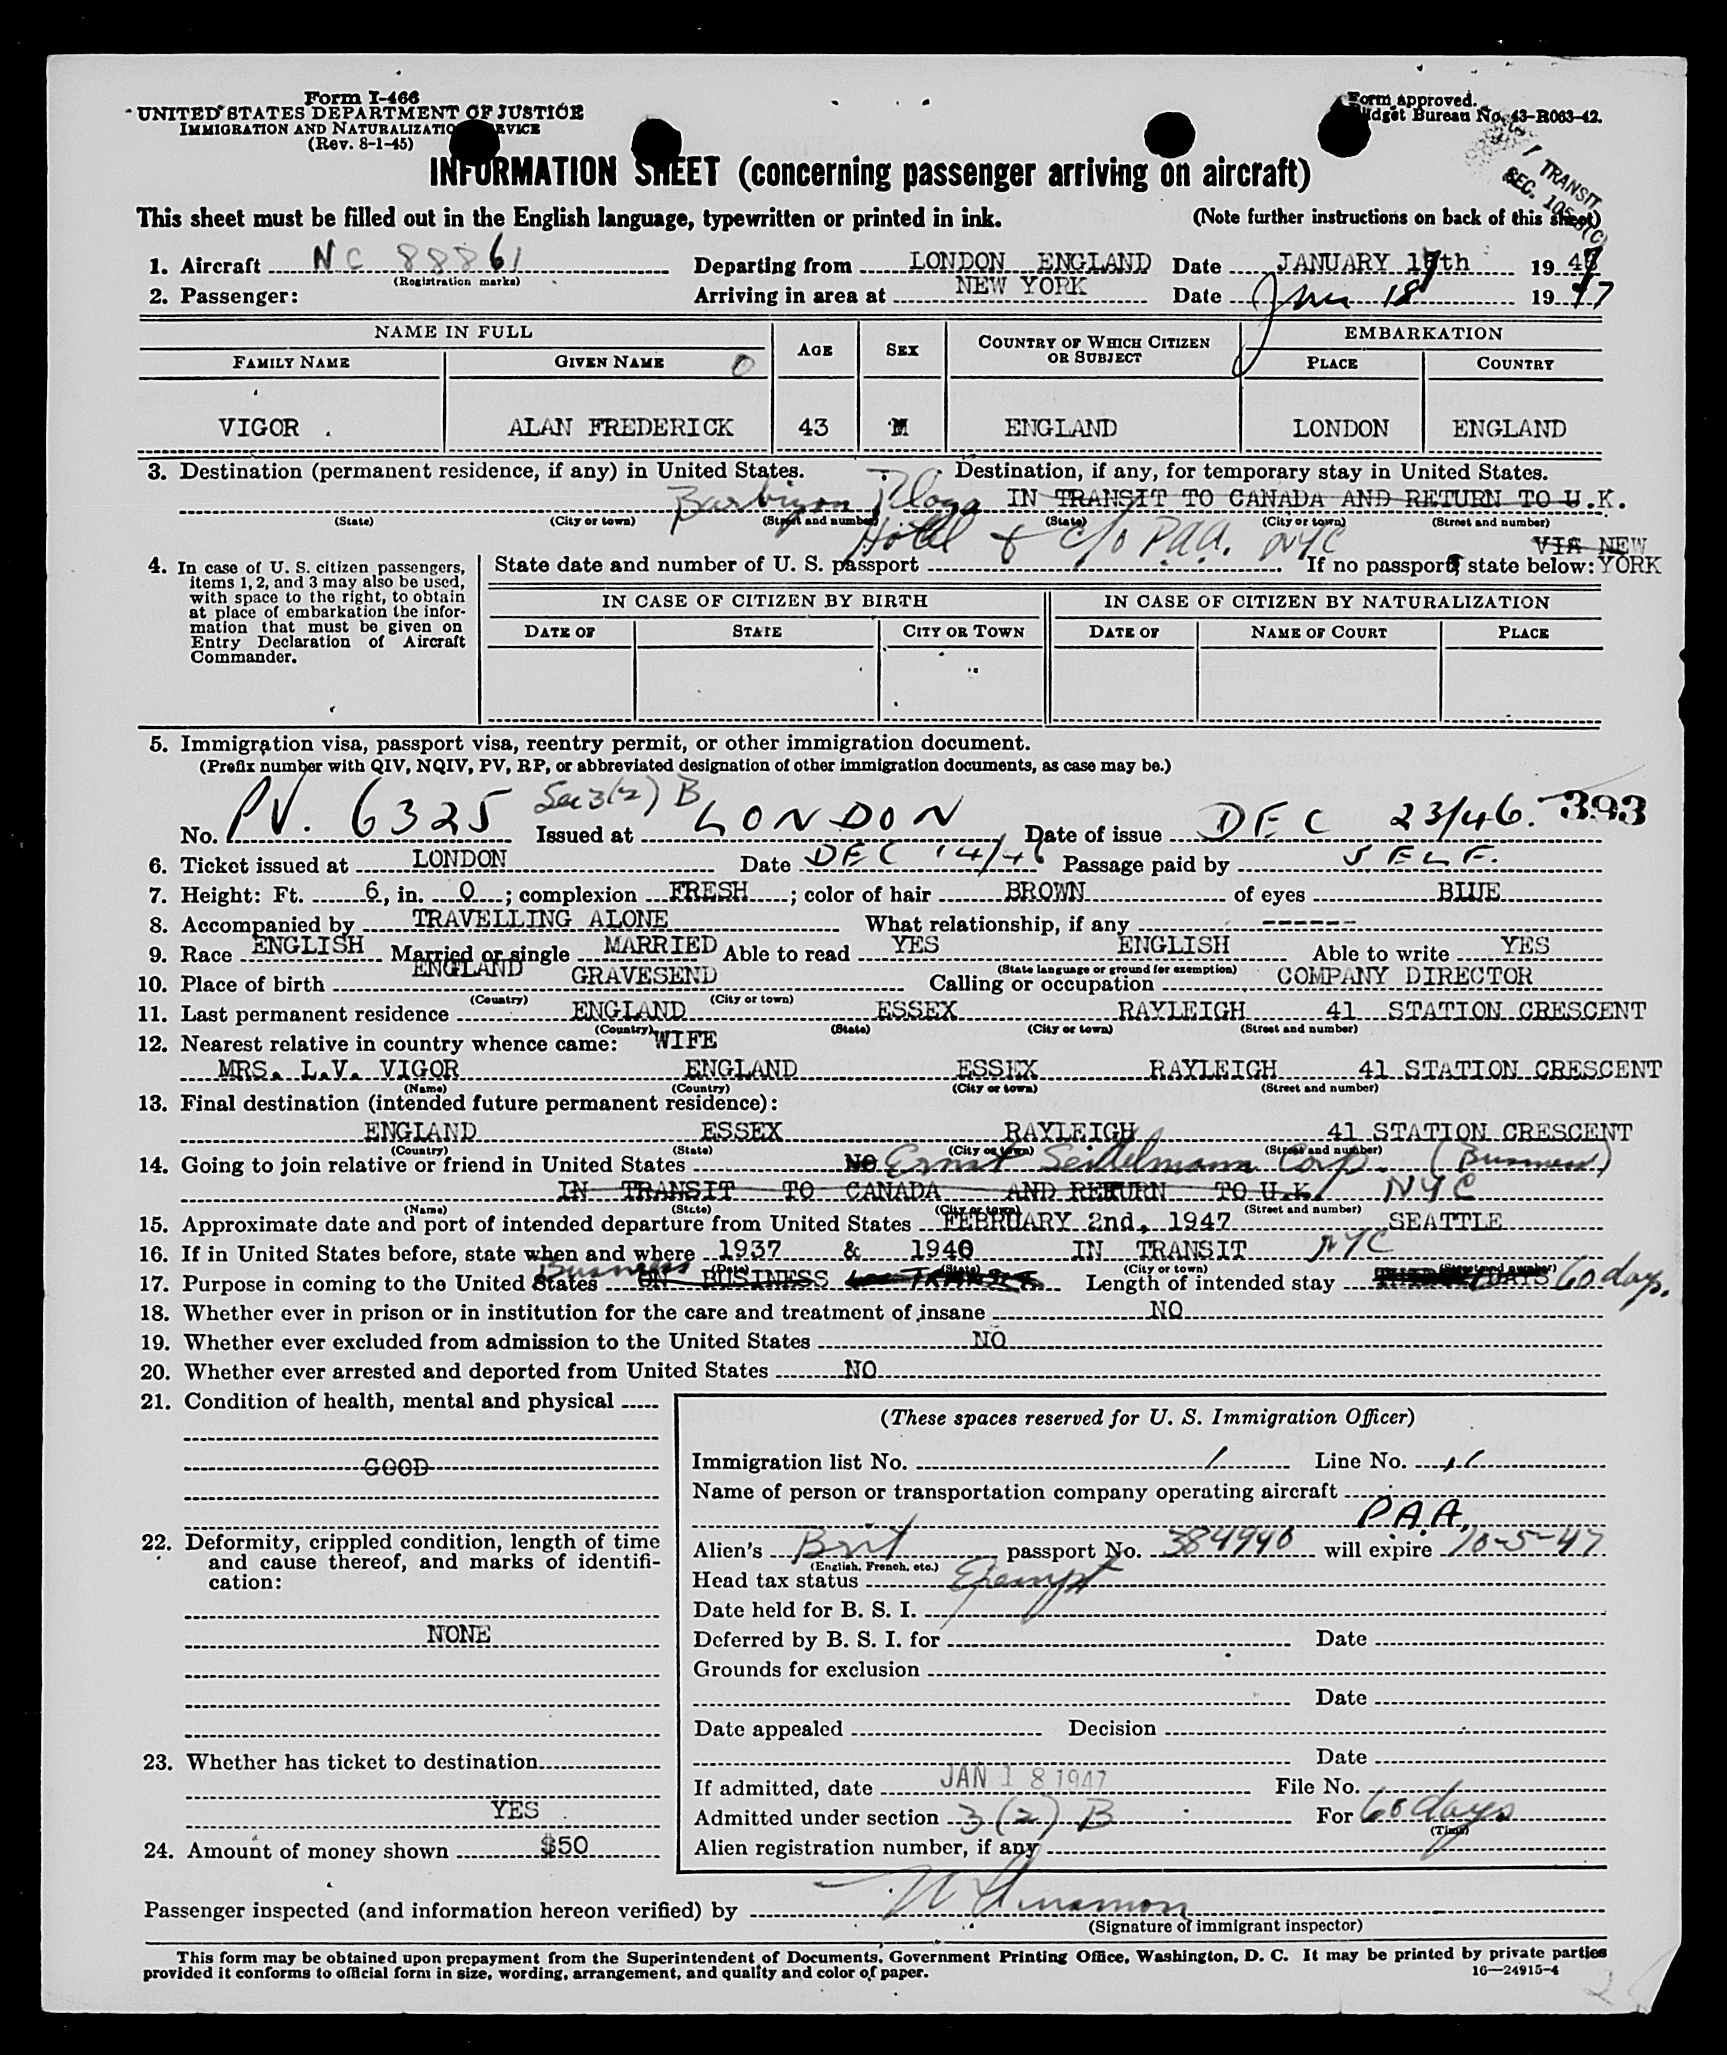 Form I-466
UNITED STATES DEPARTMENT OF JUSTICE
IMMIGRATION AND NATURALIZATION SERVICE
(Rev. 8-1-45)
Form approved.
Budget Bureau No. 43-R063-42.
TRANSIT
SEC.
INFORMATION SHEET (concerning passenger arriving on aircraft)
This sheet must be filled out in the English language, typewritten or printed in ink. (Note further instructions on back of this sheet)
1. Aircraft NC 88861 Departing from LONDON ENGLAND Date JANUARY 17th 1947
(Registration marks)
2. Passenger: Arriving in area at NEW YORK Date Jan 18 1947
NAME IN FULL AGE SEX COUNTRY OF WHICH CITIZEN OR SUBJECT EMBARKATION
FAMILY NAME GIVEN NAME PLACE COUNTRY
VIGOR ALAN FREDERICK 43 M ENGLAND LONDON ENGLAND
3. Destination (permanent residence, if any) in United States. Destination, if any, for temporary stay in United States.
Barbizon Plaza IN TRANSIT TO CANADA AND RETURN TO U.K.
(State) (City or town) (Street and number) (State) (City or town) (Street and number)
Hotel & c/o PAA. NYC VIA NEW YORK
4. In case of U. S. citizen passengers, items 1, 2, and 3 may also be used, with space to the right, to obtain at place of embarkation the information that must be given on Entry Declaration of Aircraft Commander.
State date and number of U. S. passport If no passport, state below:
IN CASE OF CITIZEN BY BIRTH IN CASE OF CITIZEN BY NATURALIZATION
DATE OF STATE CITY OR TOWN DATE OF NAME OF COURT PLACE
5. Immigration visa, passport visa, reentry permit, or other immigration document.
(Prefix number with QIV, NQIV, PV, RP, or abbreviated designation of other immigration documents, as case may be.)
Sec 3(2) B
No. PV. 6325 Issued at LONDON Date of issue DEC 23/46. 393
6. Ticket issued at LONDON Date DEC 14/46 Passage paid by SELF.
7. Height: Ft. 6, in. 0; complexion FRESH; color of hair BROWN of eyes BLUE
8. Accompanied by TRAVELLING ALONE What relationship, if any ------
9. Race ENGLISH Married or single MARRIED Able to read YES ENGLISH Able to write YES
(State language or ground for exemption)
10. Place of birth ENGLAND GRAVESEND Calling or occupation COMPANY DIRECTOR
(Country) (City or town)
11. Last permanent residence ENGLAND ESSEX RAYLEIGH 41 STATION CRESCENT
(Country) (State) (City or town) (Street and number)
12. Nearest relative in country whence came: WIFE
MRS. L.V. VIGOR ENGLAND ESSEX RAYLEIGH 41 STATION CRESCENT
(Name) (Country) (City or town) (Street and number)
13. Final destination (intended future permanent residence):
ENGLAND ESSEX RAYLEIGH 41 STATION CRESCENT
(Country) (State) (City or town) (Street and number)
14. Going to join relative or friend in United States NO Ernst Seidelmann Corp. (Business)
IN TRANSIT TO CANADA AND RETURN TO U.K. NYC
(Name) (State) (City or town) (Street and number)
15. Approximate date and port of intended departure from United States FEBRUARY 2nd, 1947 SEATTLE
16. If in United States before, state when and where 1937 & 1940 IN TRANSIT NYC
(Date) (State) (City or town) (Street and number)
17. Purpose in coming to the United States Business ON BUSINESS Length of intended stay DAYS 60 days.
18. Whether ever in prison or in institution for the care and treatment of insane NO
19. Whether ever excluded from admission to the United States NO
20. Whether ever arrested and deported from United States NO
21. Condition of health, mental and physical
GOOD
22. Deformity, crippled condition, length of time and cause thereof, and marks of identification:
NONE
23. Whether has ticket to destination
YES
24. Amount of money shown $50
(These spaces reserved for U. S. Immigration Officer)
Immigration list No. 1 Line No. 11
Name of person or transportation company operating aircraft
P.A.A.
Alien's Brit passport No. 384940 will expire 10-5-47
(English, French, etc.)
Head tax status Exempt
Date held for B. S. I.
Deferred by B. S. I. for Date
Grounds for exclusion
Date
Date appealed Decision
Date
If admitted, date JAN 18 1947 File No.
Admitted under section 3(2) B For 60 days
(Time)
Alien registration number, if any
Passenger inspected (and information hereon verified) by
(Signature of immigrant inspector)
This form may be obtained upon prepayment from the Superintendent of Documents, Government Printing Office, Washington, D. C. It may be printed by private parties
provided it conforms to official form in size, wording, arrangement, and quality and color of paper. 16—24915-4